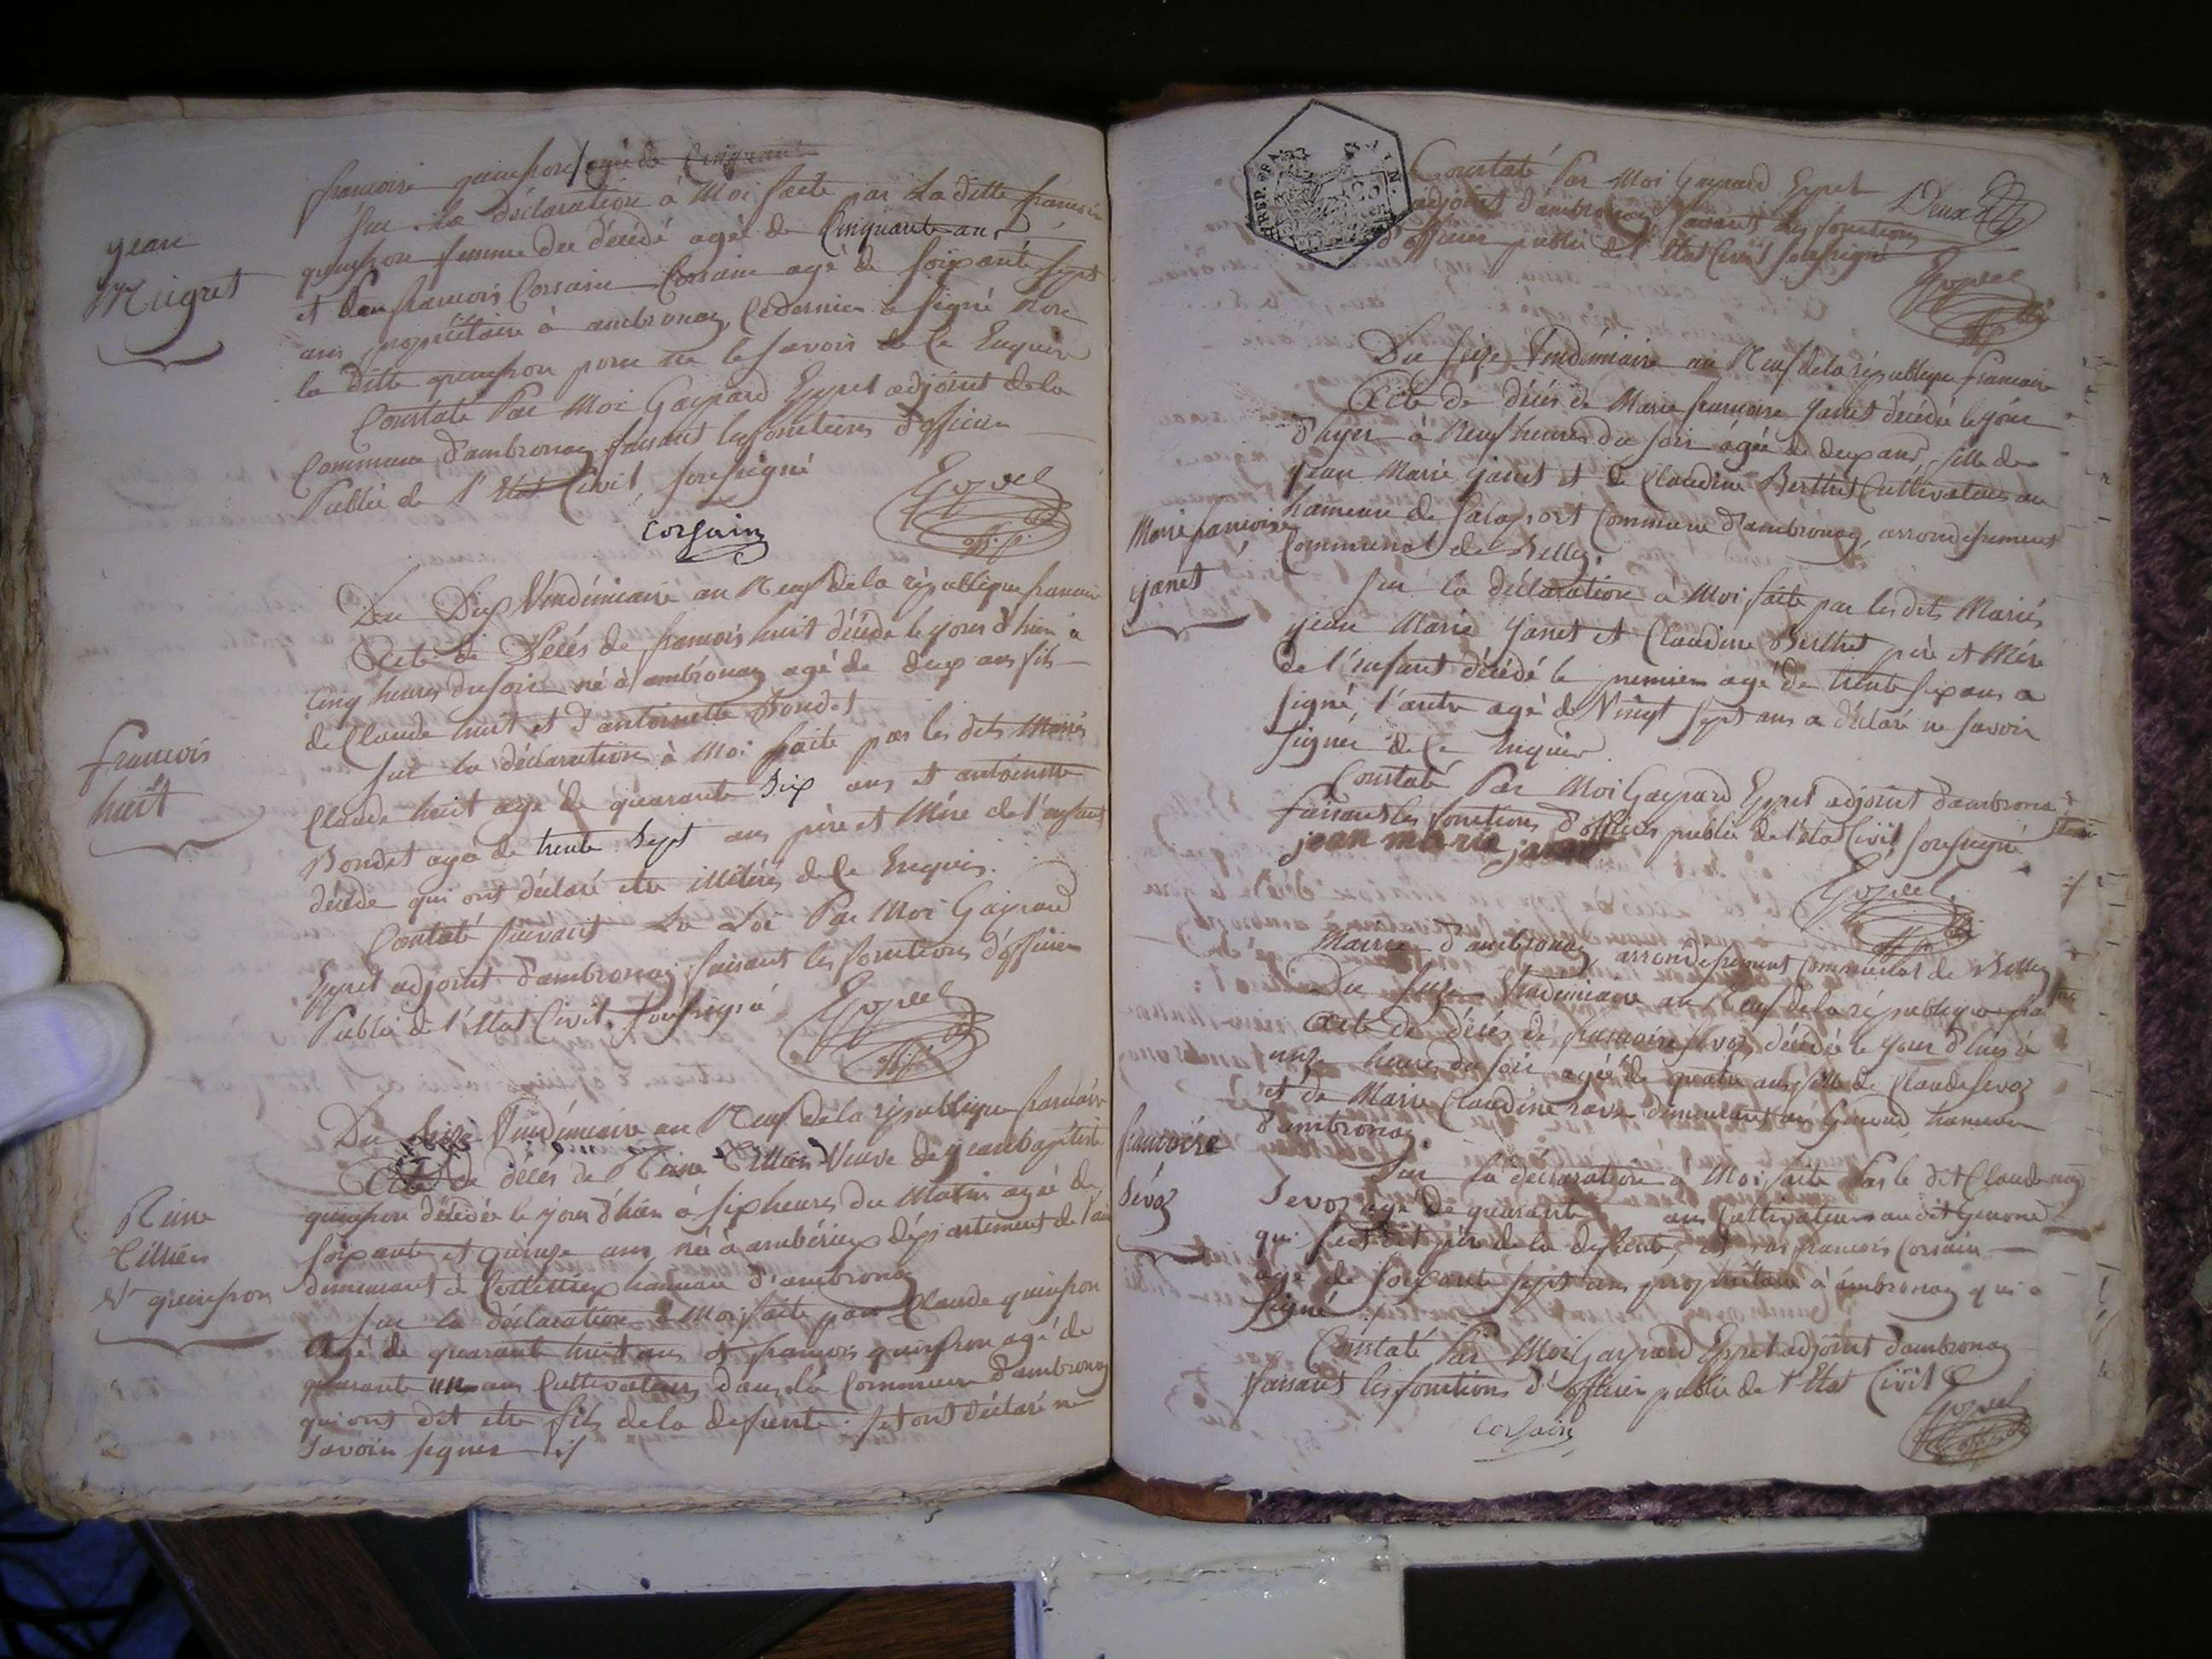 francoise quinson / agée de Cinquante
sur la déclaration à Moi faite par la ditte francoise
quinson femme du décédé agée de Cinquante ans
jean
Migret
et de francois Corsain Corsain agé de soixante sept
ans propriétaire à ambronay, Ce dernier a signé Non
la ditte quinson pour ne le savoir de Ce Enquise
Constaté Par Moi Gaspard Eppel adjoint de la
Commune d'ambronay faisant les fonctions d'officier
Public de l'Etat Civil soussigné
corsain
Du Dix Vendémiaire an Neuf de la république francaise
Acte de Décés de francois huit décédé le jour d'hier a
Cinq heures du soir né à ambronay agé de deux ans fils
de Claude huit et d'antoinette Bondet
francois
huit
sur la déclaration à Moi faite par les dits Mariés
Claude huit agé de quarante six ans et antoinette
Bondet agée de trente sept ans père et Mère de l'enfant
décédé qui ont déclaré etre illitérés de Ce Enquis.
Constaté suivant La Loi Par Moi Gaspard
Eppel adjoint d'ambronay faisant les fonctions d'officier
Public de l'Etat Civil, soussigné
Du seize Vendémiaire an Neuf de la république francaise
Acte de décés de Reine Tillier Veuve de jean baptiste
quinson décédée le jour d'hier à six heures du Matin agée de
Reine
Tillier
Ve quinson
soixante et quinze ans, née à ambérieux département de l'ain
demeurant à Cottellieux hameau d'ambronay
sur la déclaration à Moi faite par Claude quinson
agé de quarante huit ans et francois quinson agé de
quarante un ans Cultivateurs dans la Commune d'ambronay
qui ont dit etre fils de la defunte. et ont déclaré ne
savoir signer
Constaté Par Moi Gaspard Eppel
adjoint d'ambronay, faisant les fonctions
d'officier public de l'Etat Civil soussigné
Deux
Du seize Vendémiaire an Neuf de la république francaise
Acte de décés de Marie francoise Janet décédée le jour
d'hyer à Neuf heures du soir agée de deux ans, fille de
jean Marie Janet et de Claudine Berthet Cultivateurs au
hameau de Salaport Commune d'ambronay, arrondissement
Communal de Belley.
Marie francoise
Janet
sur la déclaration à Moi faite par les dits Mariés
jean Marie Janet et Claudine Berthet père et Mère
de l'enfant décédé le premier agé de trente six ans a
signé, l'autre agé de Vingt sept ans a déclaré ne savoir
signer de Ce Enquis
Constaté Par Moi Gaspard Eppel adjoint d'ambronay
faisant les fonctions d'officier public de l'etat Civil, soussigné
jean marie janet
Mairie d'ambronay, arrondissement Communal de Belley
Du seize Vendémiaire an Neuf de la république
Acte de décés de francoise Sevoz décédée le jour d'hier à
onze heures du soir agée de quatre ans, fille de Claude Sevoz
et de Marie Claudine demeurant au Genoud, hameau
d'ambronay.
francoise
Sévoz
sur la déclaration à Moi faite Par le dit Claude
Sevoz agé de quarante ans Cultivateur audit Genoud
qui s'est dit père de la defunte, et par francois Corsain
agé de soixante sept ans propriétaire à ambronay qui a
signé
Constaté Par Moi Gaspard Eppel adjoint d'ambronay
faisant les fonctions d'officier public de l'Etat Civil
corsain